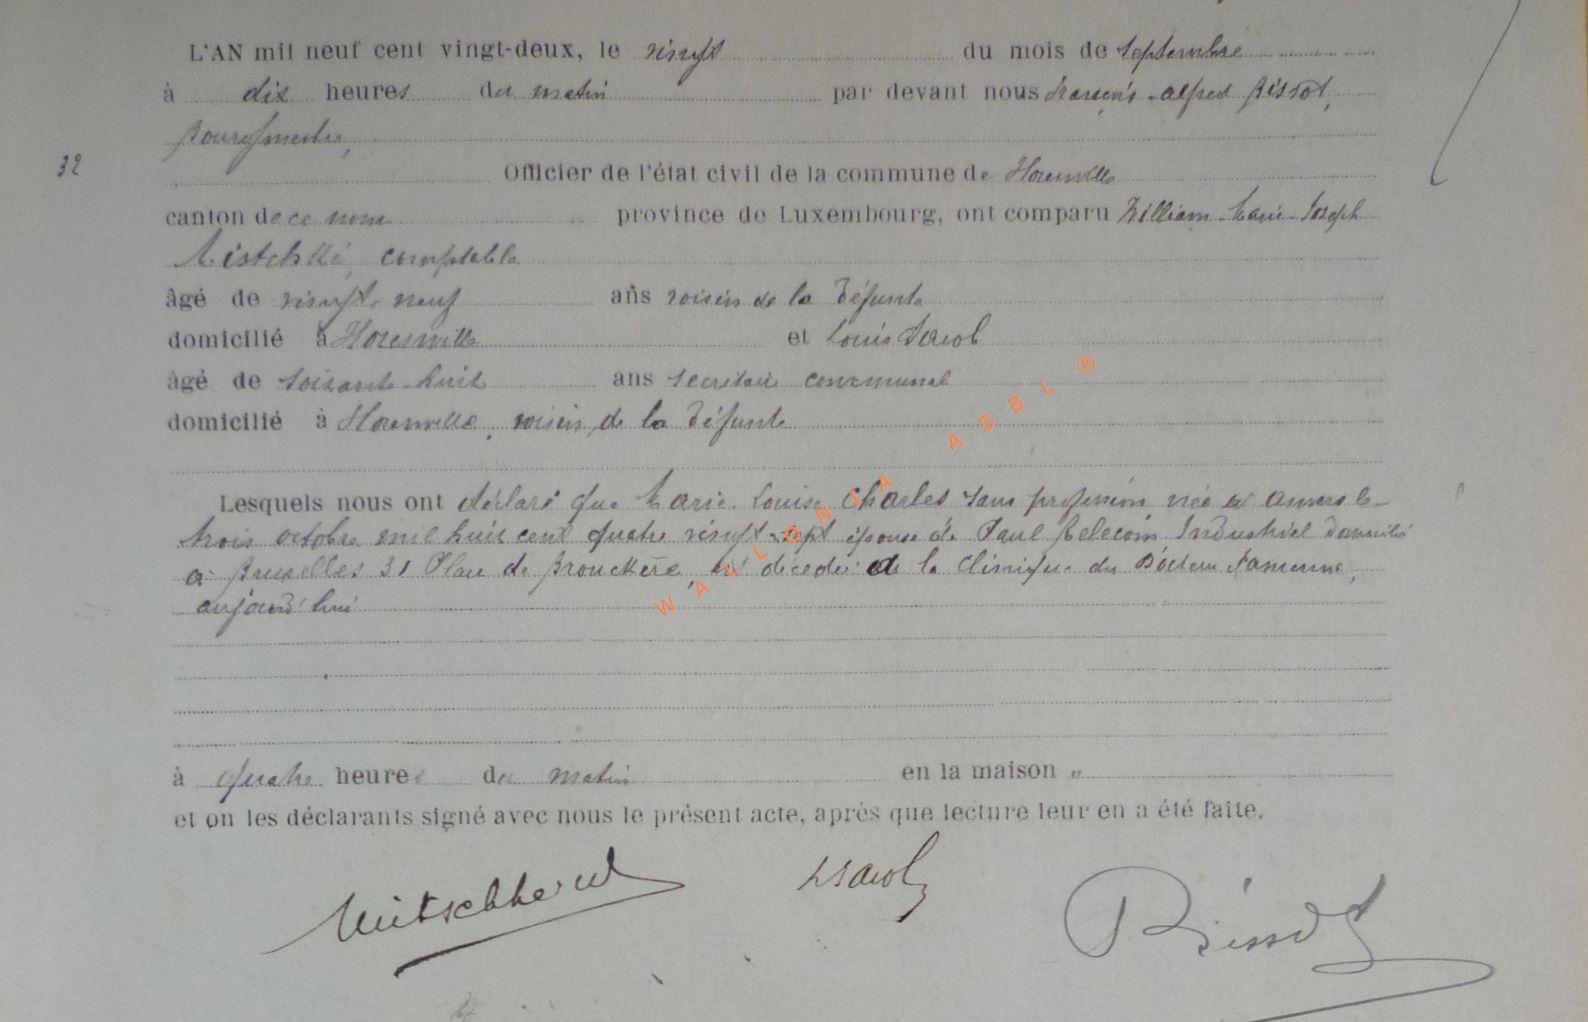 L'AN mil neuf cent vingt-deux, le vingt du mois de septembre
à dix heures du matin par devant nous François-Alfred Bissot,
Bourgmestre,
32
Officier de l'état civil de la commune de Florenville
canton de ce nom province de Luxembourg, ont comparu William-Marie-Joseph
comptable
âgé de vingt-neuf ans voisin de la défunte
domicilié à Florenville et Louis Jacob
âgé de soixante-huit ans secrétaire communal
domicilié à Florenville, voisin, de la défunte
Lesquels nous ont déclaré que Marie-Louise Charles sans profession née à Anvers le
trois octobre mil huit cent quatre vingt-sept épouse de Paul Industriel domicilié
à Bruxelles 31 Place de Brouckère, est décédée à la Clinique du Docteur
aujourd'hui
à quatre heures du matin en la maison "
et on les déclarants signé avec nous le présent acte, après que lecture leur en a été faite.
LJacob
Bissot
WALLONIA ASBL ®